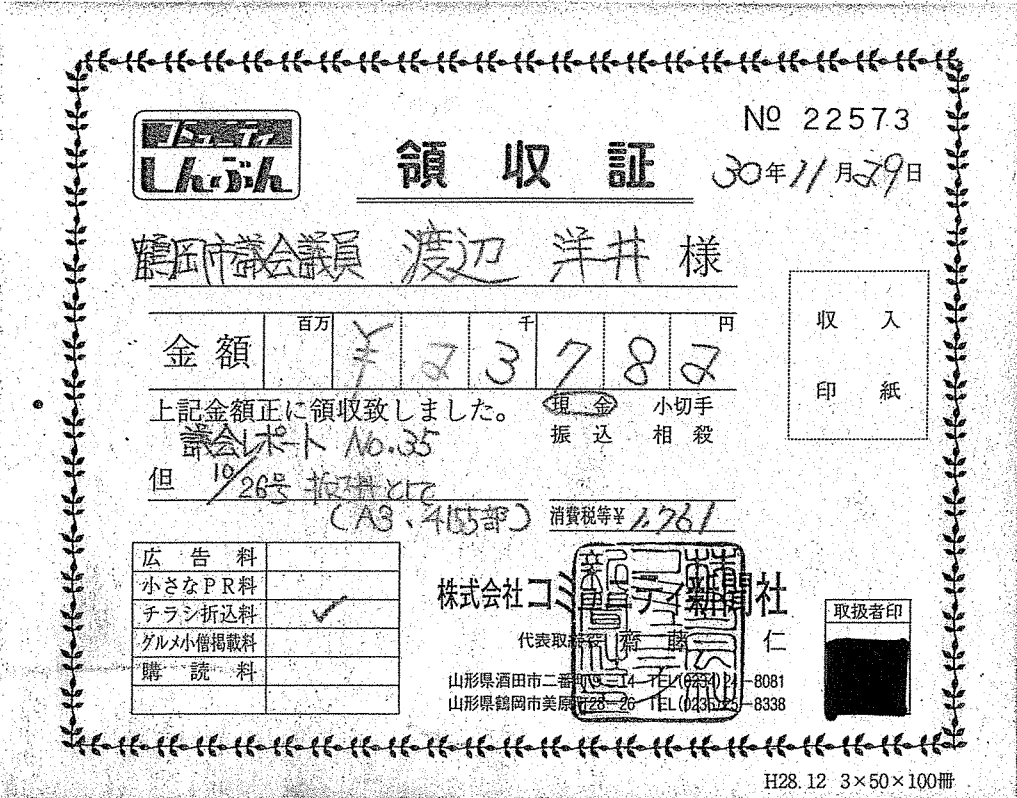 コミュニティ
しんぶん
領収証
№ 22573
30年11月29日
鶴岡市議会議員 渡辺 洋井 様
金額 百万 千 円
¥23782
収入
印紙
上記金額正に領収致しました。
現金 小切手
振込 相殺
議会レポート No.35
但 10/26号 折込料として
(A3、4155部)
消費税等¥1,761
広告料
小さなPR料
チラシ折込料 ✓
グルメ小僧掲載料
購読料
株式会社コミュニティ新聞社
代表取締役 齋藤 仁
山形県酒田市二番町9-14 TEL(0234)24-8081
山形県鶴岡市美原町28-26 TEL(0235)25-8338
取扱者印
H28.12 3×50×100冊